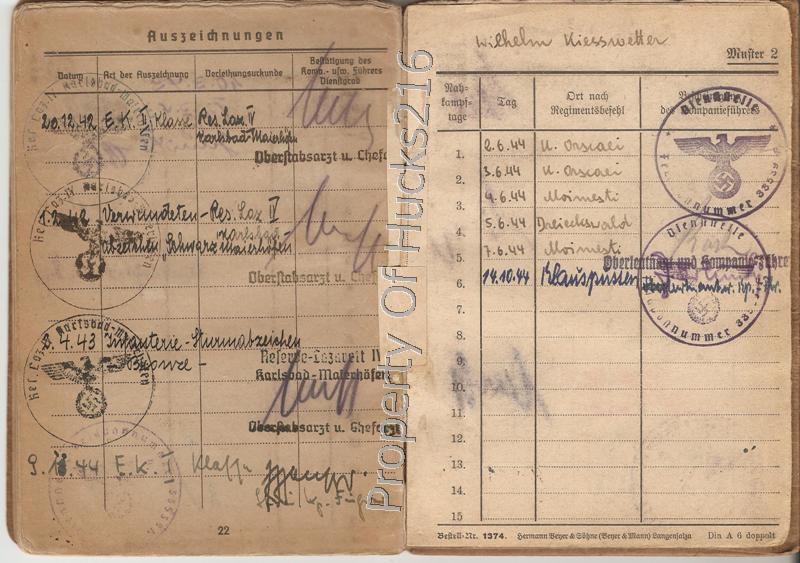 Auszeichnungen
Datum
Art der Auszeichnung
Verleihungsurkunde
Bestätigung des
Komp.- usw. Führers
Dienstgrad
20.12.42 E.K. I Klasse Res. Laz. IV
Karlsbad-Maierhöfen
Oberstabsarzt u. Chefa
.42 Verwundeten- Res. Laz IV
Karlsbad-
abzeichen "Schwarz" Maierhöfen
Oberstabsarzt u. Chefa
4.43 Infanterie-Sturmabzeichen
Bronze-
Reserve-Lazarett IV
Karlsbad-Maierhöfen
Oberstabsarzt u. Chefa
9. .44 E.K. I Klasse
22
Wilhelm Kiesswetter
Muster 2
Nah-
kampf-
tage
Tag
Ort nach
Regimentsbefehl
des Kompanieführers
1. 2.6.44 U. Orscaei
2. 3.6.44 U. Orscaei
3. 4.6.44 Moimesti
4. 5.6.44 Dreieckswald
5. 7.6.44 Moimesti
Oberleutnant und Kompanie-Führe
6. 14.10.44
7.
8.
9.
10.
11.
12.
13.
14.
15
Dienststelle
Feldpostnummer 33539
Dienststelle
Bestell-Nr. 1374. Hermann Beyer & Söhne (Beyer & Mann) Langensalza Din A 6 doppelt
Property Of Hucks216